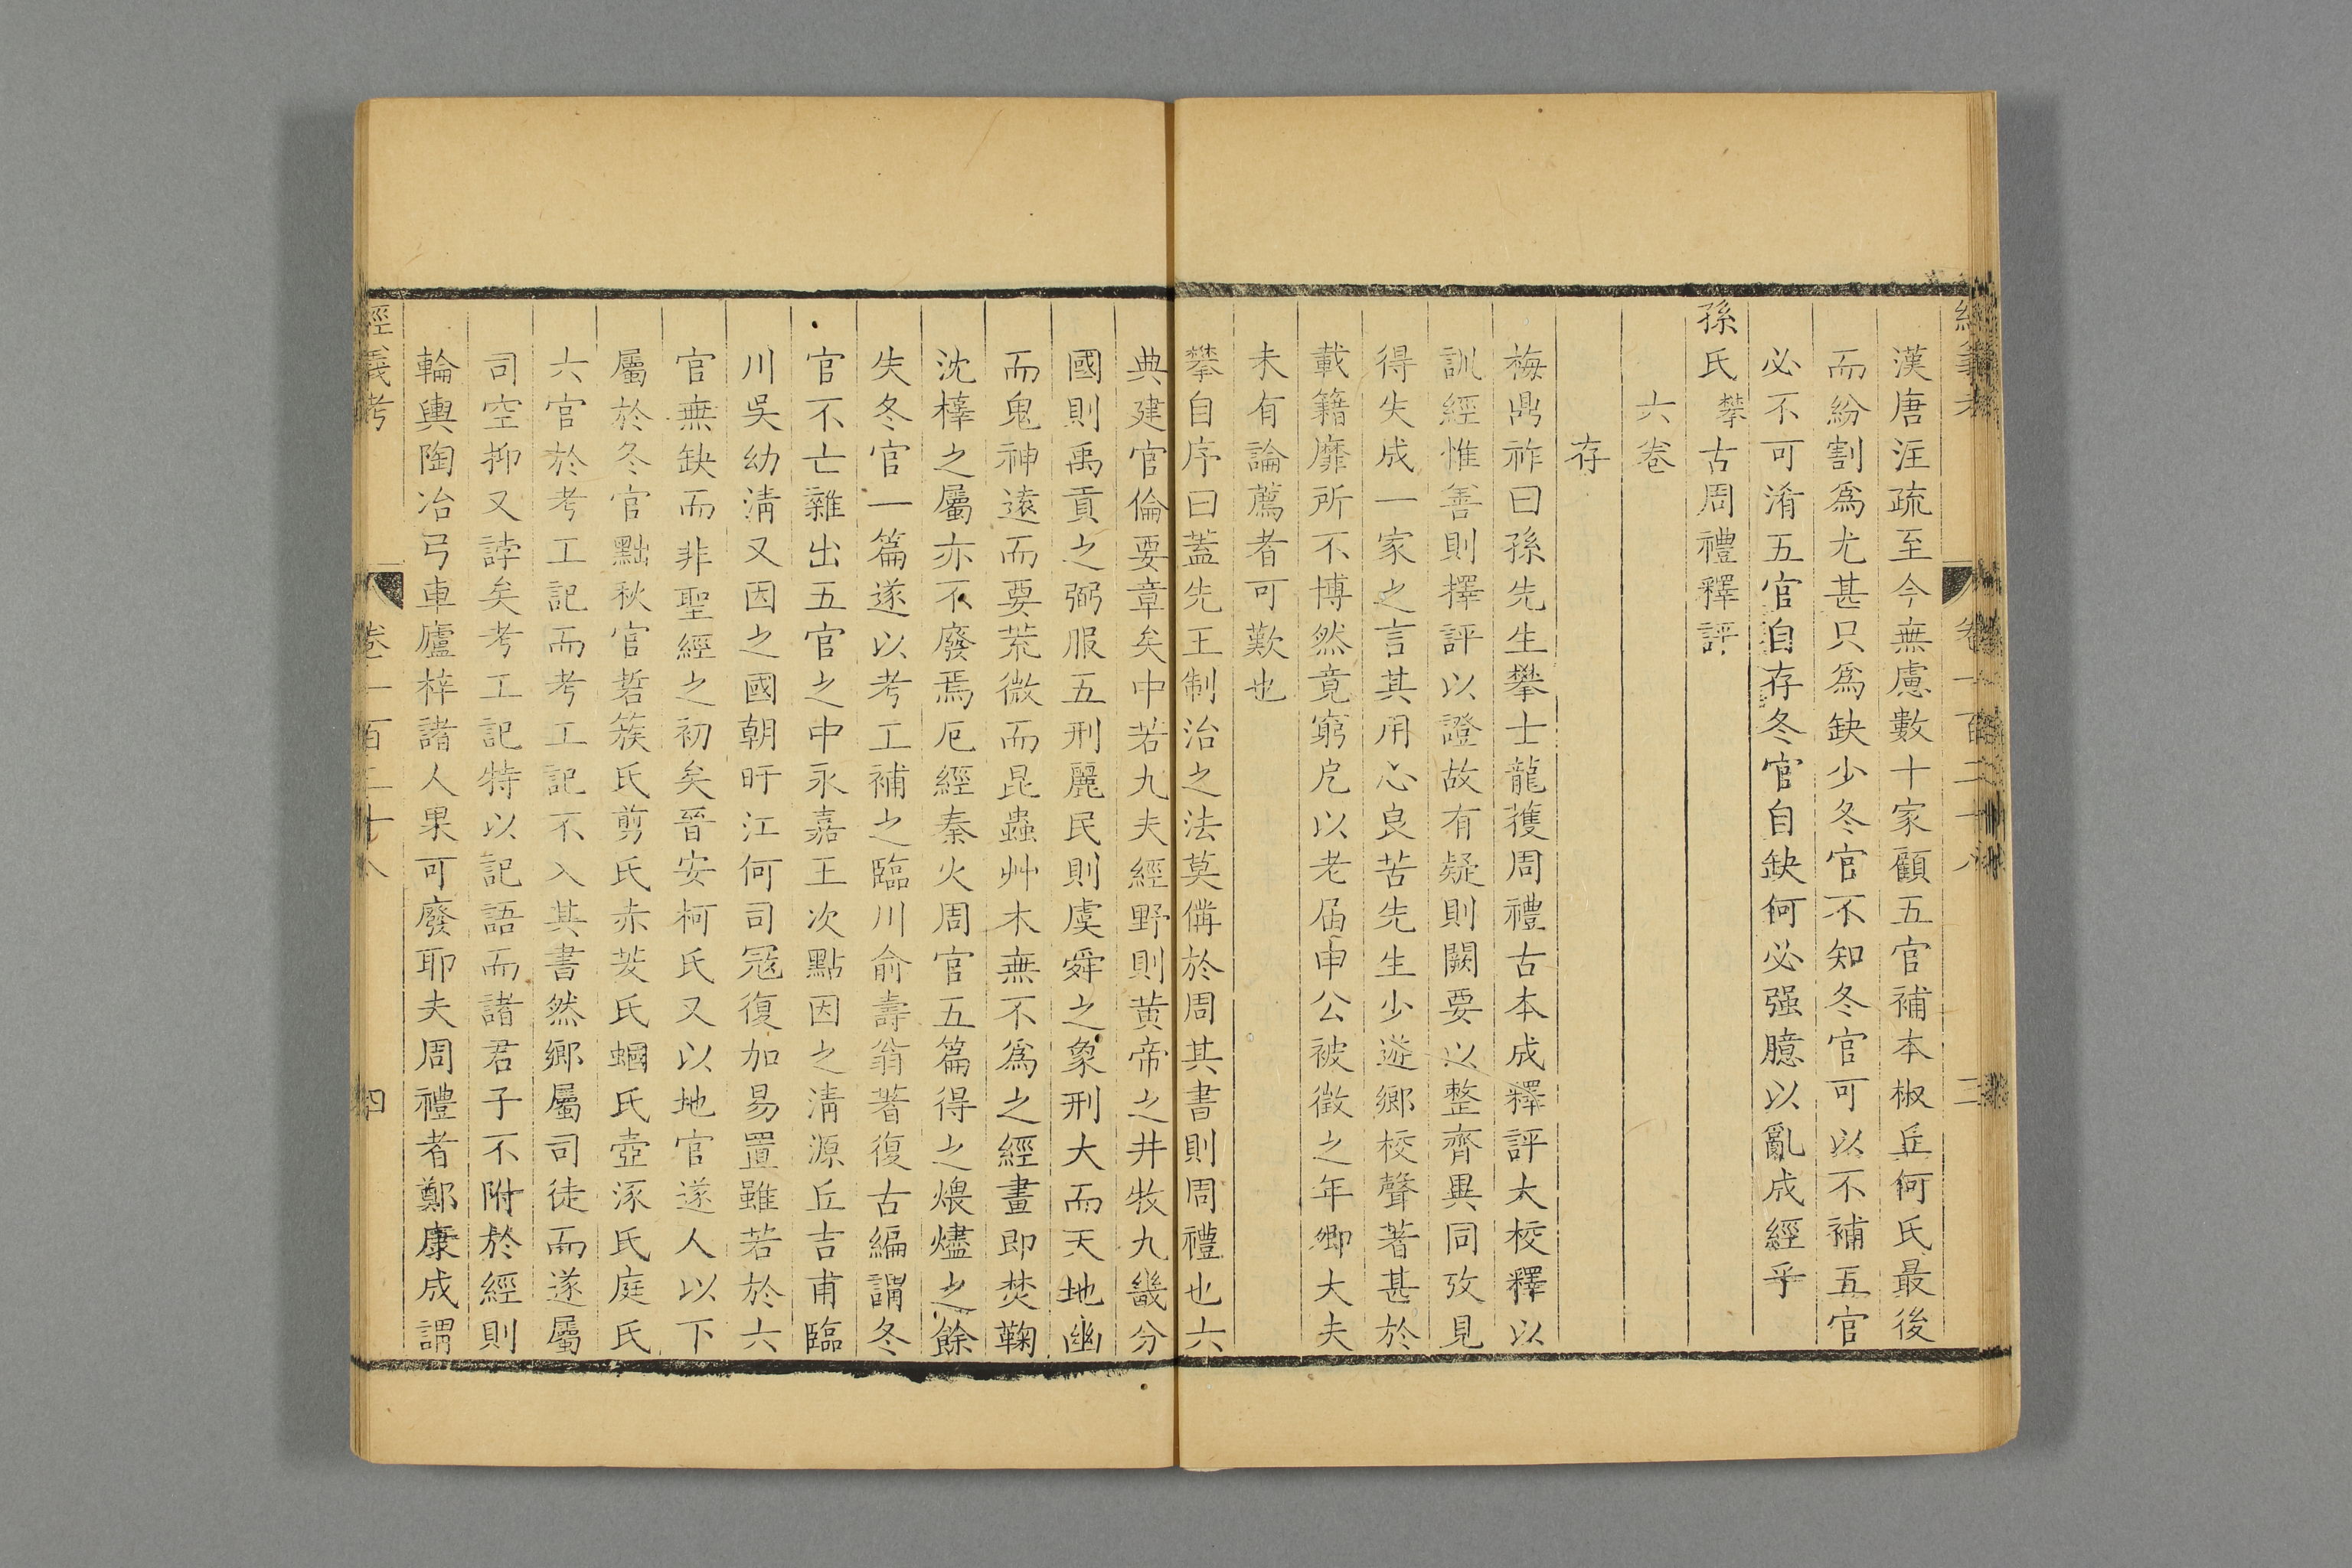 漢唐注疏至今無慮數十家顧五官補本椒丘何氏最後
而紛割爲尤甚只爲缺少冬官不知冬官可以不補五官
必不可淆五官自存冬官自缺何必强臆以亂成經乎
孫氏攀古周禮釋評
六卷
存
梅鼎祚曰孫先生攀士龍獲周禮古本成釋評大校釋以
訓經惟善則擇評以證故有疑則闕要以整齊異同攷見
得失成一家之言其用心良苦先生少遊鄉校聲著甚於
載籍靡所不博然竟窮戹以老届申公被徵之年鄉大夫
未有論薦者可歎也
攀自序曰蓋先王制治之法莫備於周其書則周禮也六
典建官倫要章矣中若九夫經野則黄帝之井牧九畿分
國則禹貢之弼服五刑麗民則虞舜之象刑大而天地幽
而鬼神遠而要荒微而昆蟲艸木無不爲之經畫即焚鞠
沈橭之屬亦不廢焉厄經秦火周官五篇得之煨燼之餘
失冬官一篇遂以考工補之臨川俞壽翁著復古編謂冬
官不亡雜出五官之中永嘉王次點因之清源丘吉甫臨
川吳幼清又因之國朝旴江何司冦復加易置雖若於六
官無缺而非聖經之初矣晉安柯氏又以地官遂人以下
屬於冬官黜秋官硩蔟氏剪氏赤犮氏蟈氏壺涿氏庭氏
六官於考工記而考工記不入其書然鄉屬司徒而遂屬
司空抑又誖矣考工記特以記語而諸君子不附於經則
輪輿陶冶弓車廬梓諸人果可廢耶夫周禮者鄭康成謂
經義考
卷一百二十八
四